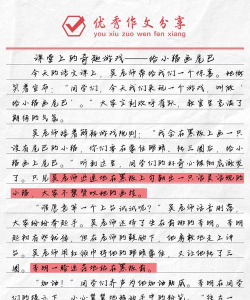 优秀作文分享
you xiu zuo wen fen xiang
课堂上的奇趣游戏——给小猫画尾巴
今天的语文课上，吴老师带给我们一个惊喜。她微
笑着宣布：“同学们，今天我们来玩一个游戏，叫做‘
给小猫画尾巴’。”大家立刻欢呼雀跃，教室里充满了
期待的气氛。
吴老师接着解释游戏规则：“我会在黑板上画一只
没有尾巴的小猫，你们要蒙住眼睛，转三圈后，给小
猫画上尾巴。”听到这里，同学们的好奇心被彻底激发
了。只见吴老师迅速地在黑板上勾勒出一只活灵活现的
小猫，大家不禁赞叹她的画技。
“谁愿意第一个上台试试呢？”吴老师话音刚落，
大家纷纷举起手。吴老师选择了坐在前排的李明。李明
起初有些
但在老师的鼓励下，他勇敢地走上讲
台。吴老师用红领巾将他的眼睛蒙住，又让他转了三
圈。李明一脸迷茫地站在黑板前。
“加油！”同学们齐声为他加油鼓劲。李明在同学